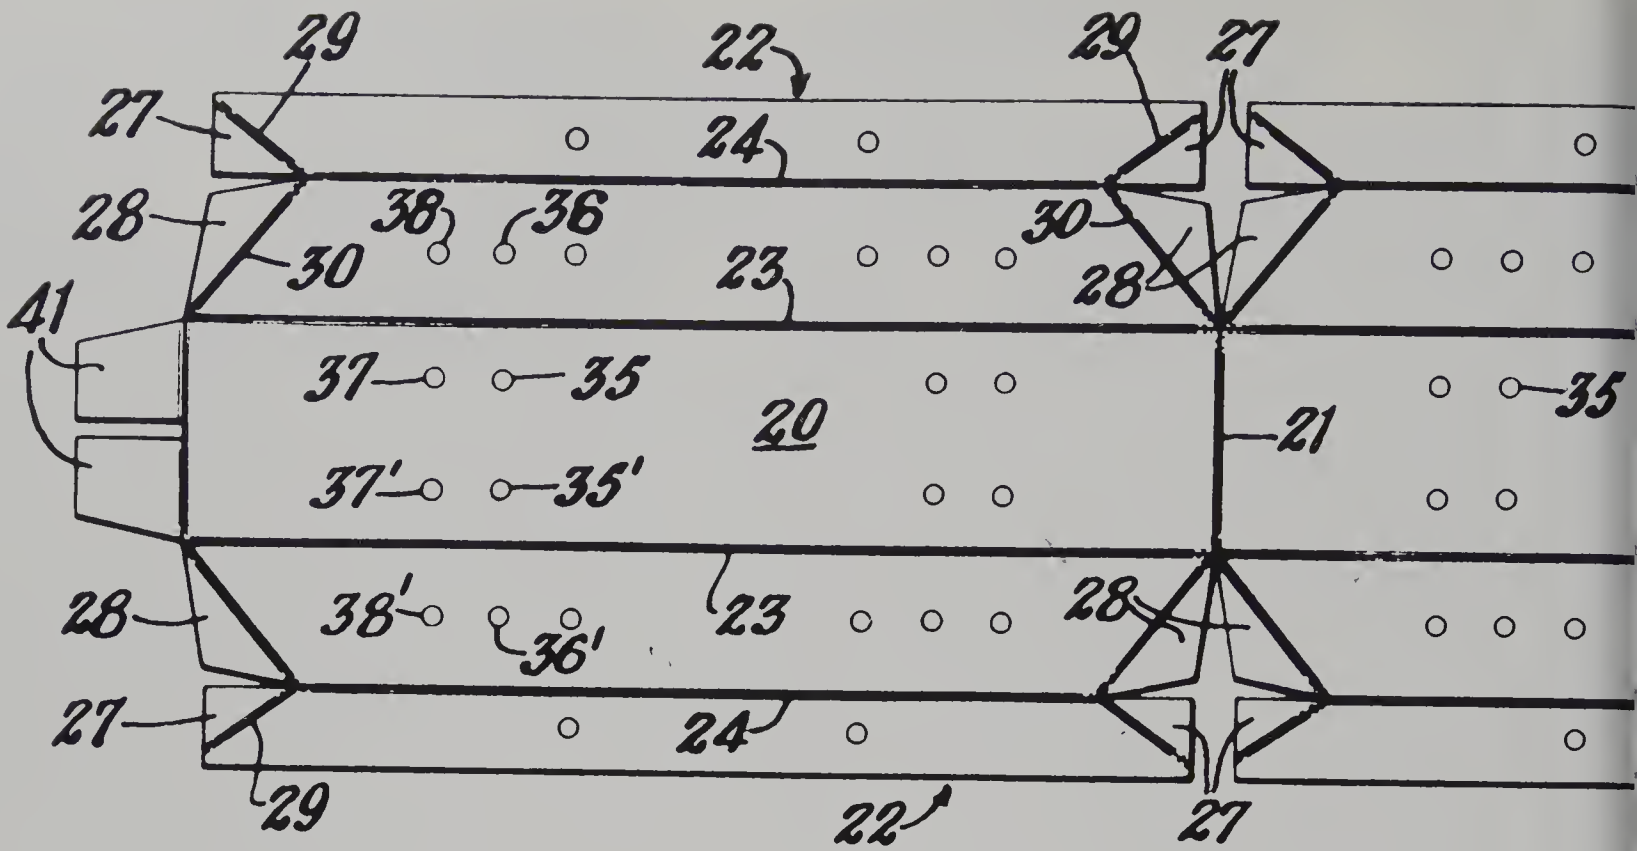 29 22 29 27
27 24
28 38 36 30
30 23 28
41
37 35 35
20 21
37' 35'
28 38' 36' 23 28
27 24
29 22 27